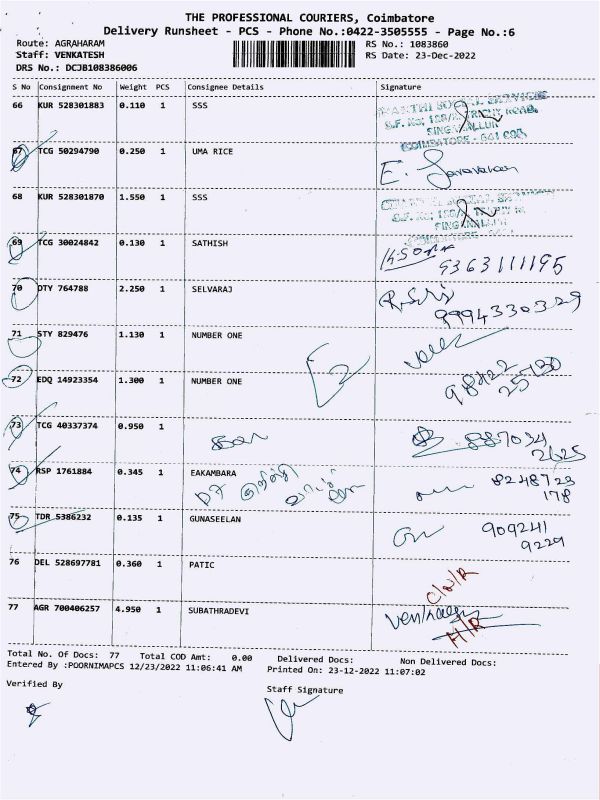 THE PROFESSIONAL COURIERS, Coimbatore
Delivery Runsheet - PCS - Phone No.:0422-3505555 - Page No.:6
Route: AGRAHARAM RS No.: 1083860
Staff: VENKATESH RS Date: 23-Dec-2022
DRS No.: DCJB108386006
S No Consignment No Weight PCS Consignee Details Signature
66 KUR 528301883 0.110 1 SSS
67 TCG 50294790 0.250 1 UMA RICE E. Saravanan
68 KUR 528301870 1.550 1 SSS
69 TCG 30024842 0.130 1 SATHISH 9363111195
70 DTY 764788 2.250 1 SELVARAJ 9994330329
71 STY 829476 1.130 1 NUMBER ONE
72 EDQ 14923354 1.300 1 NUMBER ONE 2 98422 25730
73 TCG 40337374 0.950 1 887034 2625
74 RSP 1761884 0.345 1 EAKAMBARA 8248723 178
75 TDR 5386232 0.135 1 GUNASEELAN 909241 9229
76 DEL 528697781 0.360 1 PATIC
77 AGR 700406257 4.950 1 SUBATHRADEVI
Total No. Of Docs: 77 Total COD Amt: 0.00 Delivered Docs: Non Delivered Docs:
Entered By :POORNIMAPCS 12/23/2022 11:06:41 AM Printed On: 23-12-2022 11:07:02
Verified By Staff Signature